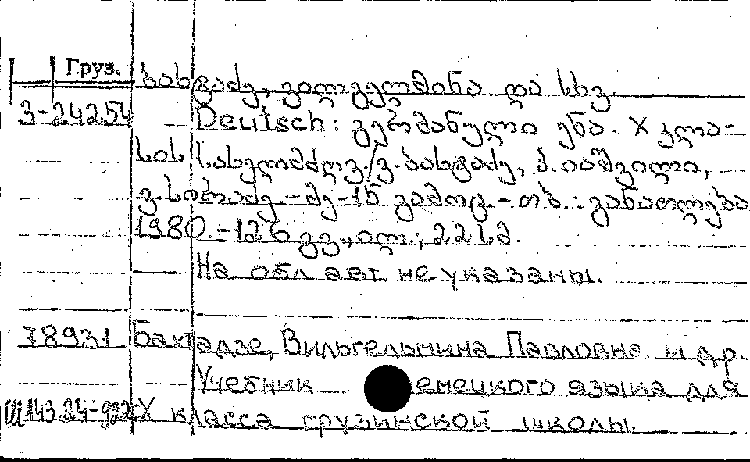 Груз. ბახტაძე, ვილგელმინა და სხვ.
3-24254 Deutsch: გერმანული ენა. X კლა-
სის სახელმძღვ./ვ. ბახტაძე, პ. იაშვილი,
ვ. - მე-15 გამოც. - თბ.: განათლება
1980. - 126 გვ., ილ.; 22 სმ.
На обл авт не указаны.
78931 Бахтадзе, Вильгельмина Павловна и др.
Учебник емецкого языка для
X класса грузинской школы.